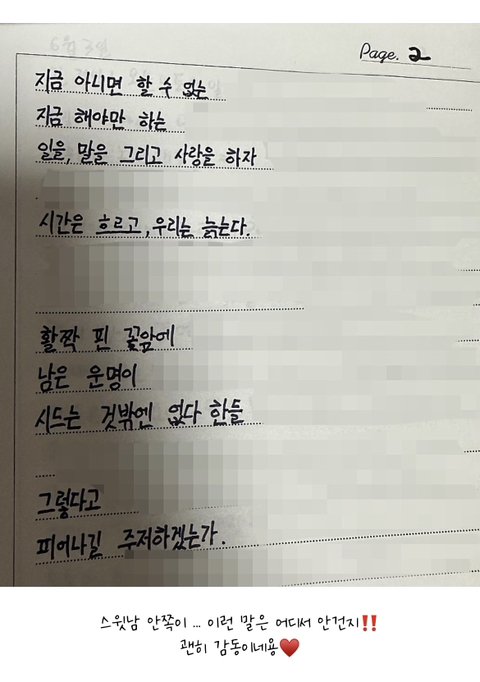 Page. 2
지금 아니면 할 수 없는
지금 해야만 하는
일을, 말을 그리고 사랑을 하자
시간은 흐르고, 우리는 늙는다.
활짝 핀 꽃앞에
남은 운명이
시드는 것밖엔 없다 한들
그렇다고
피어나길 주저하겠는가.
스윗남 안쪽이 ... 이런 말은 어디서 안건지‼️
괜히 감동이네용♥️